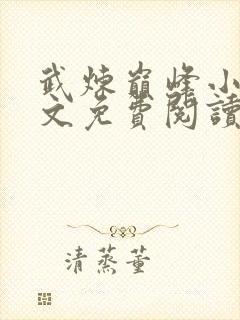 武煉巔峰小
文免費閱讀
清蒸董